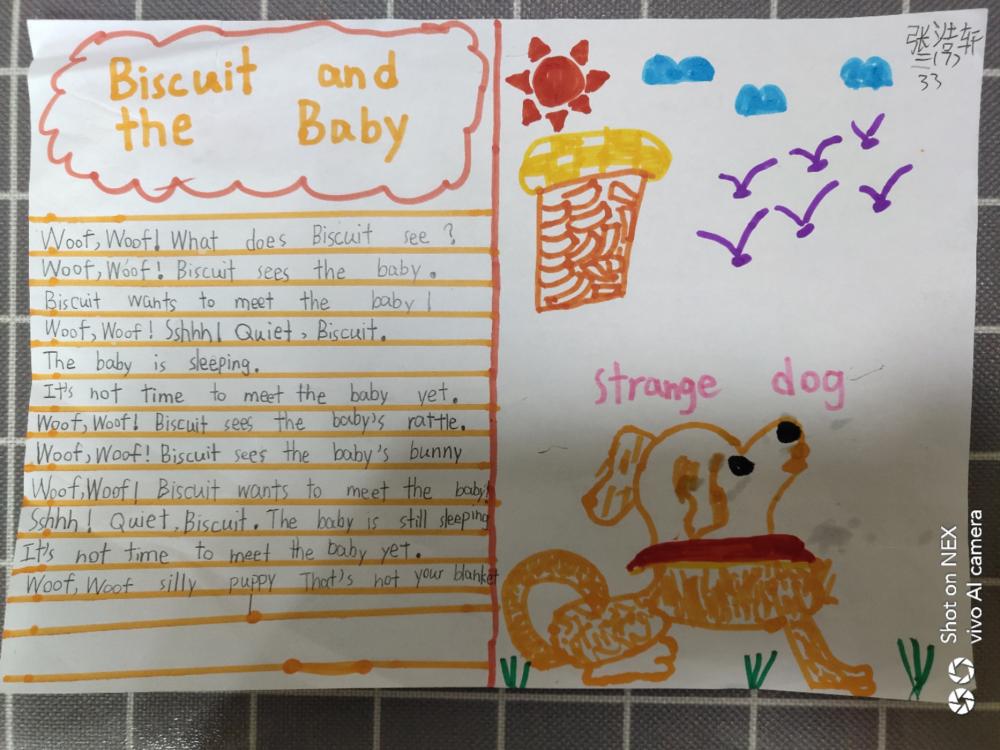 Biscuit and
the Baby
Woof, Woof! What does Biscuit see?
Woof, Woof! Biscuit sees the baby.
Biscuit wants to meet the baby!
Woof, Woof! Sshhh! Quiet, Biscuit.
The baby is sleeping.
It's not time to meet the baby yet.
Woof, Woof! Biscuit sees the baby's rattle.
Woof, Woof! Biscuit sees the baby's bunny
Woof, Woof! Biscuit wants to meet the baby!
Sshhh! Quiet, Biscuit. The baby is still sleeping
It's not time to meet the baby yet.
Woof, Woof silly puppy That's not your blanket
张浩轩
33
strange dog
Shot on NEX
vivo AI camera